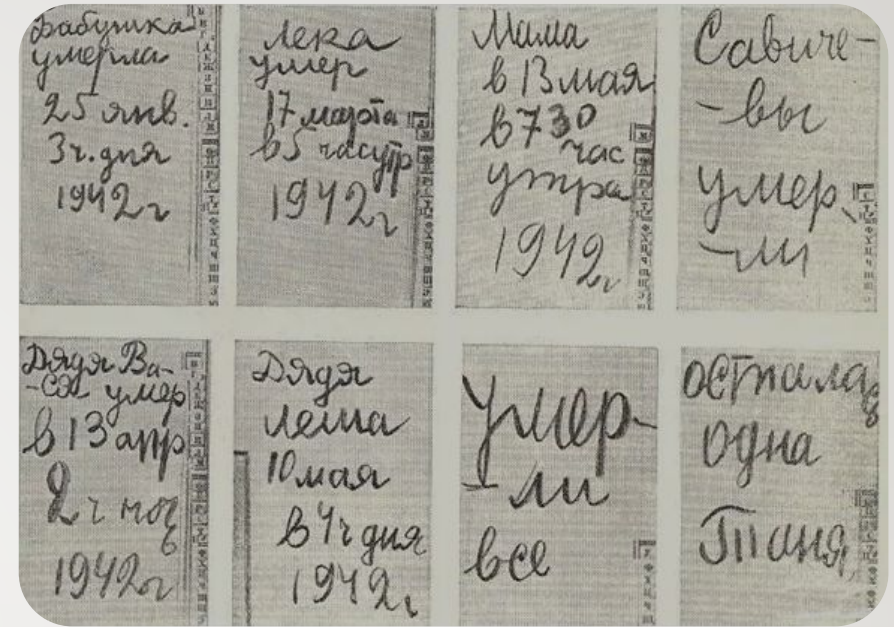 Бабушка
умерла
25 янв.
3ч. дня
1942 г
Лека
умер
17 марта
в 5 час утр
1942 г
Мама
в 13 мая
в 7 30
час
утра
1942 г
Савиче-
-вы
умер
-ли
Дядя Ва-
-ся умер
в 13 апр
2 ч ноч
1942 г
Дядя
Леша
10 мая
в 4 ч дня
1942 г
Умер-
-ли
все
Осталась
одна
Таня